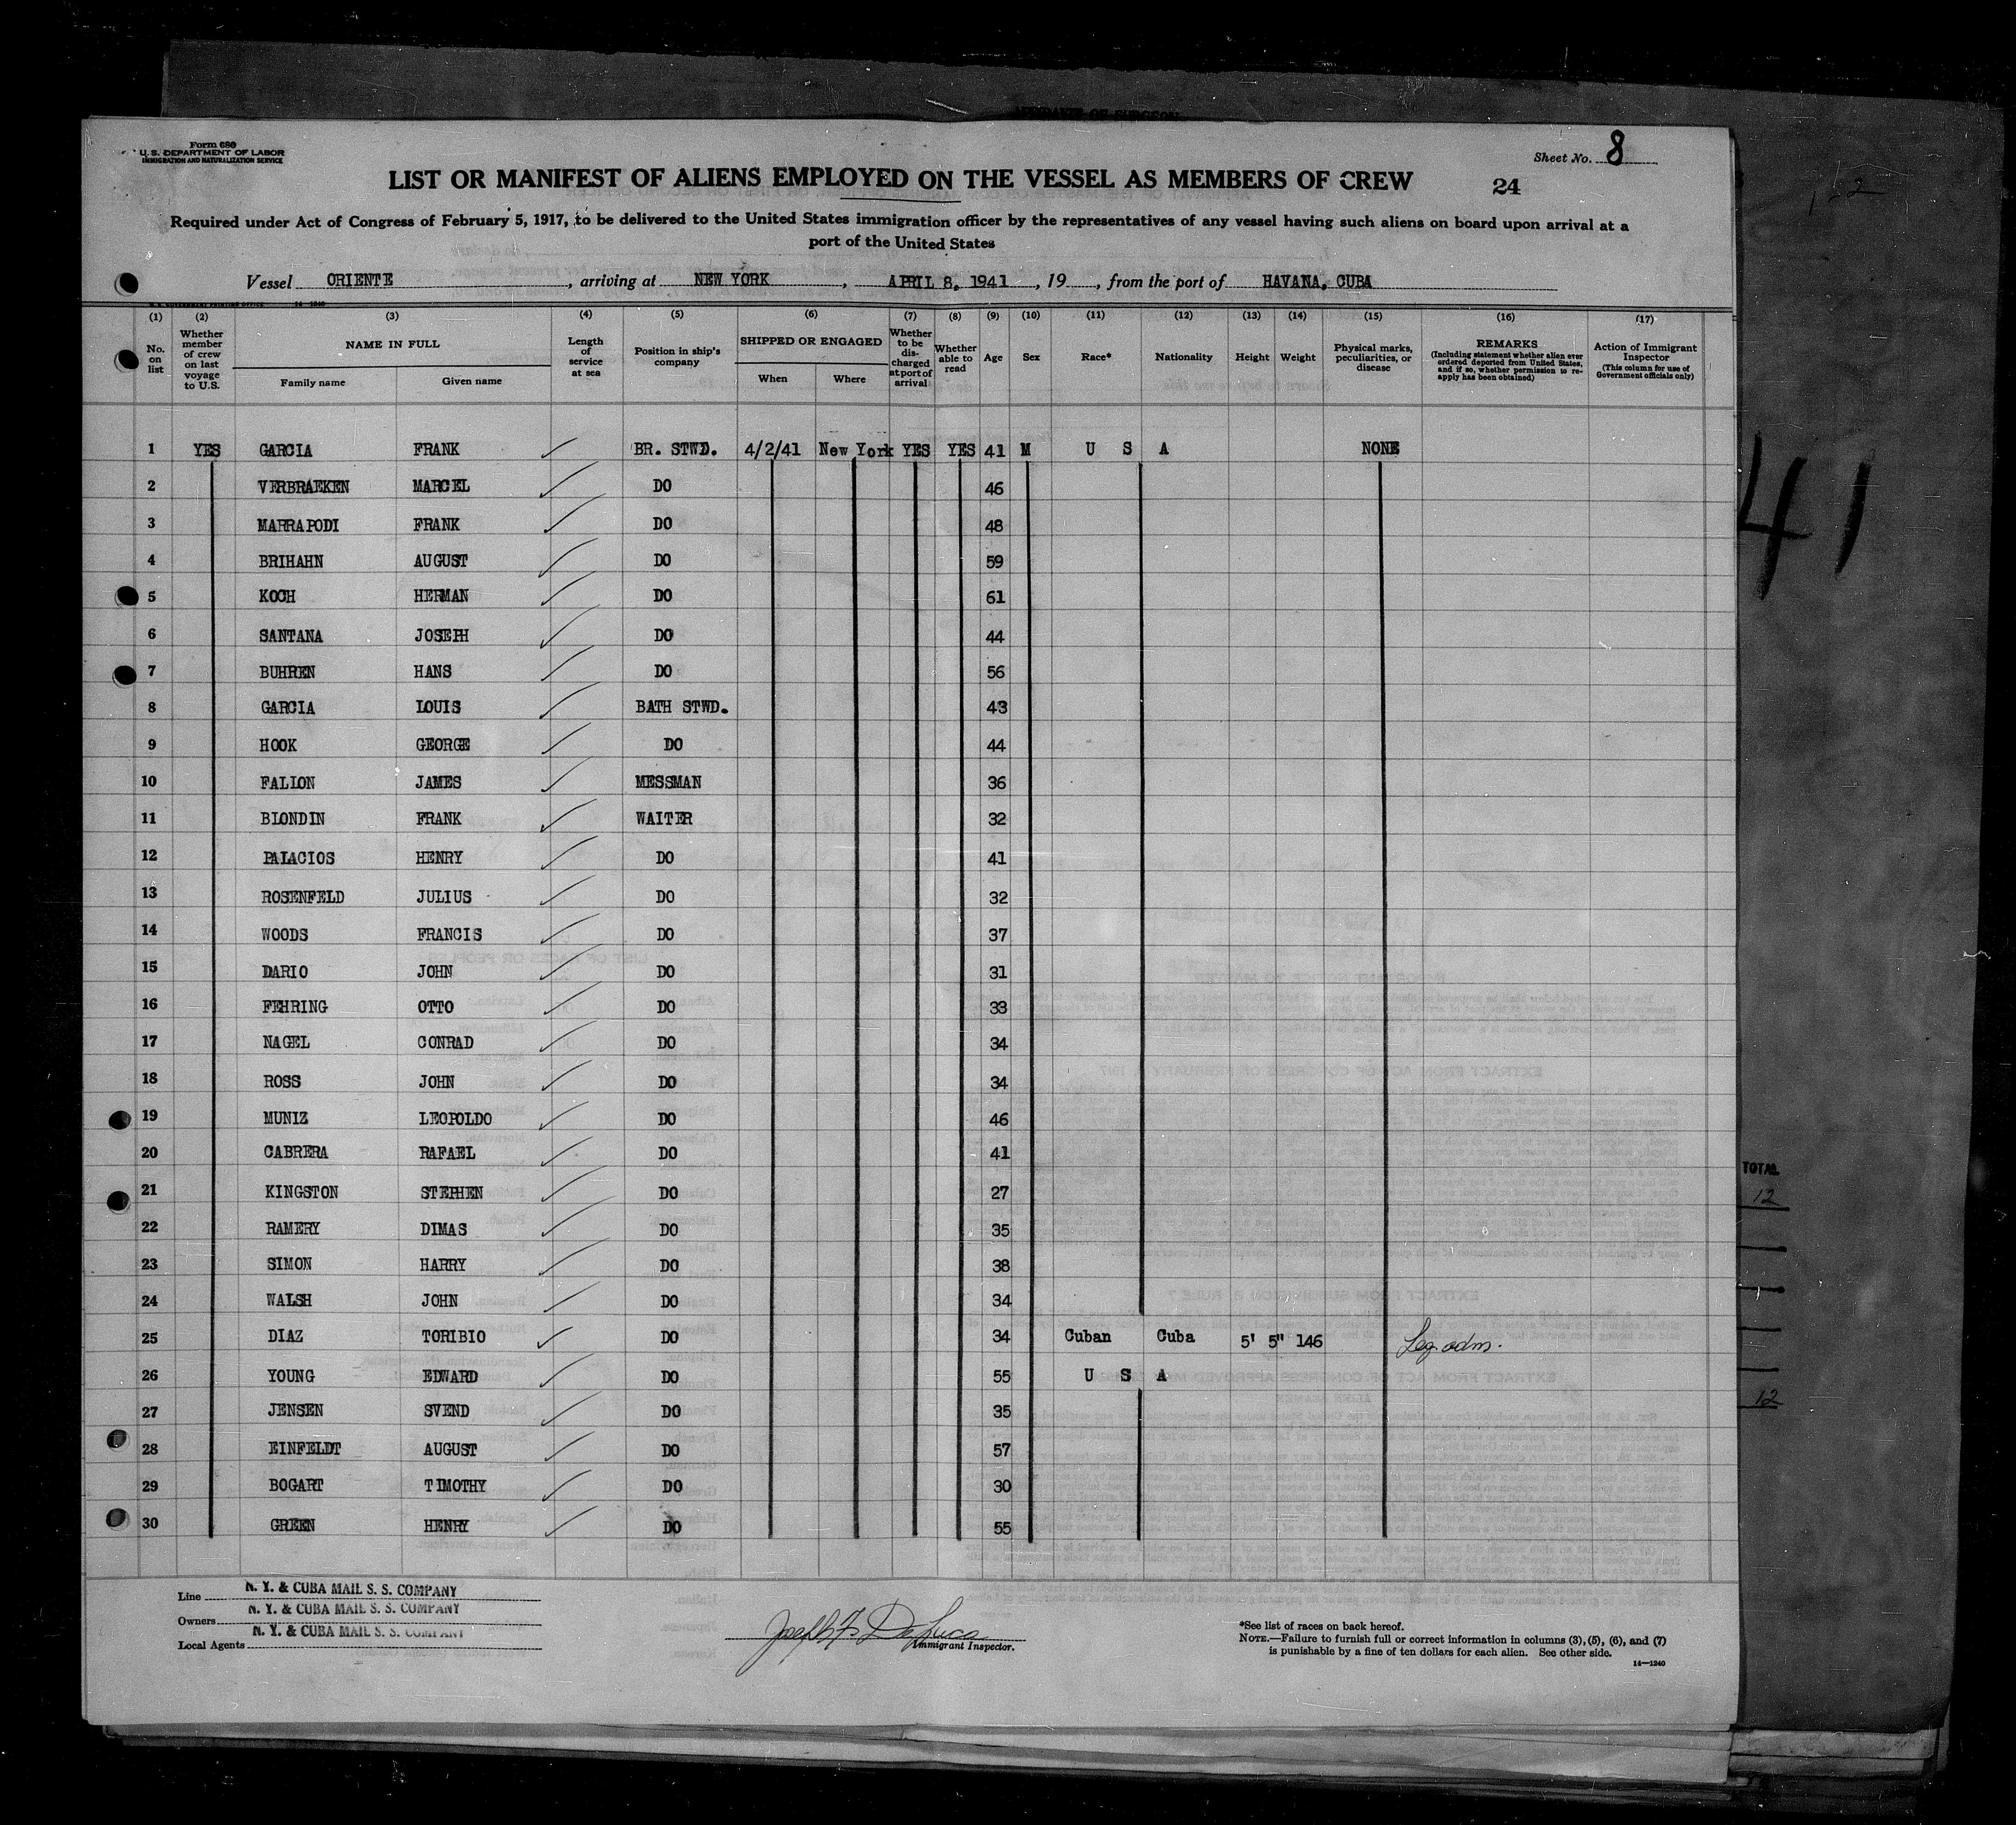 AFFIDAVIT OF SURGEON
Form 680
U.S. DEPARTMENT OF LABOR
IMMIGRATION AND NATURALIZATION SERVICE
Sheet No. 8
LIST OR MANIFEST OF ALIENS EMPLOYED ON THE VESSEL AS MEMBERS OF CREW
24
Required under Act of Congress of February 5, 1917, to be delivered to the United States immigration officer by the representatives of any vessel having such aliens on board upon arrival at a
port of the United States
Vessel ORIENTE, arriving at NEW YORK, APRIL 8, 1941, 19, from the port of HAVANA, CUBA
(1) (2) (3) (4) (5) (6) (7) (8) (9) (10) (11) (12) (13) (14) (15) (16) (17)
No. on list
Whether member of crew on last voyage to U.S.
NAME IN FULL
Family name Given name
Length of service at sea
Position in ship's company
SHIPPED OR ENGAGED
When Where
Whether to be discharged at port of arrival
Whether able to read
Age
Sex
Race*
Nationality
Height
Weight
Physical marks, peculiarities, or disease
REMARKS
(Including statement whether alien ever ordered deported from United States, and if so, whether permission to reapply has been obtained)
Action of Immigrant Inspector
(This column for use of Government officials only)
1 YES GARCIA FRANK BR. STWD. 4/2/41 New York YES YES 41 M U S A NONE
2 VERBRAEKEN MARCEL DO 46
3 MARRAPODI FRANK DO 48
4 BRIHAHN AUGUST DO 59
5 KOCH HERMAN DO 61
6 SANTANA JOSEPH DO 44
7 BUHREN HANS DO 56
8 GARCIA LOUIS BATH STWD. 43
9 HOOK GEORGE DO 44
10 FALLON JAMES MESSMAN 36
11 BLONDIN FRANK WAITER 32
12 PALACIOS HENRY DO 41
13 ROSENFELD JULIUS DO 32
14 WOODS FRANCIS DO 37
15 DARIO JOHN DO 31
16 FEHRING OTTO DO 33
17 NAGEL CONRAD DO 34
18 ROSS JOHN DO 34
19 MUNIZ LEOPOLDO DO 46
20 CABRERA RAFAEL DO 41
21 KINGSTON STEPHEN DO 27
22 RAMERY DIMAS DO 35
23 SIMON HARRY DO 38
24 WALSH JOHN DO 34
25 DIAZ TORIBIO DO 34 Cuban Cuba 5' 5" 146 Leg. adm.
26 YOUNG EDWARD DO 55 U S A
27 JENSEN SVEND DO 35
28 EINFELDT AUGUST DO 57
29 BOGART TIMOTHY DO 30
30 GREEN HENRY DO 55
41
TOTAL
12
12
Line N. Y. & CUBA MAIL S. S. COMPANY
Owners N. Y. & CUBA MAIL S. S. COMPANY
Local Agents N. Y. & CUBA MAIL S. S. COMPANY
Joseph F. DeLuca
Immigrant Inspector.
*See list of races on back hereof.
NOTE.—Failure to furnish full or correct information in columns (3), (5), (6), and (7)
is punishable by a fine of ten dollars for each alien. See other side.
14—1240